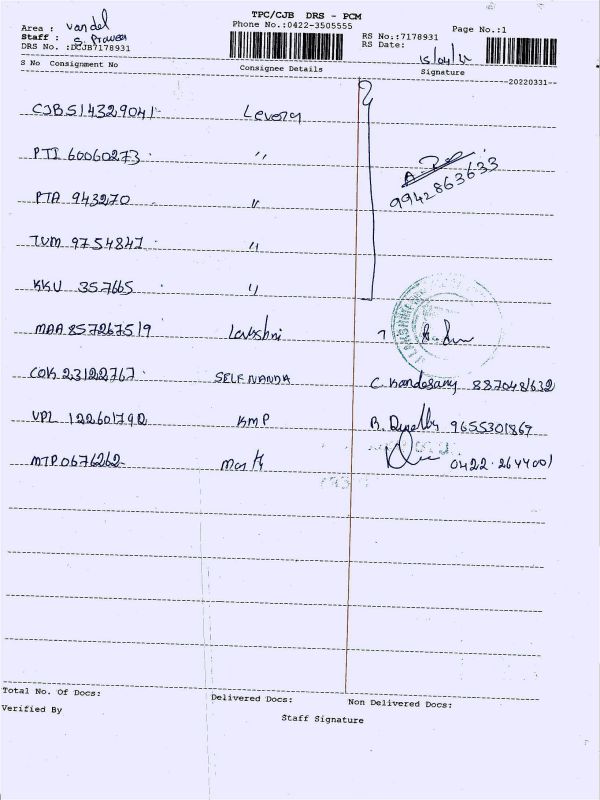 TPC/CJB DRS - PCM
Phone No.:0422-3505555
Area : vandel
Staff : S. Praveen
DRS No. :DCJB7178931
RS No.:7178931
RS Date: 15/04/22
Page No.:1
S No Consignment No Consignee Details Signature
--20220331--
CJB514329041 Levera
PTI 60060273 〃
A. 
9942863633
PTA 943270 〃
TVM 9754847 〃
KKU 357665 〃
MAA 857267519 Lakshmi
COK 23122767 SELF NANDA C. Kandasamy 8870481632
VPL 122601792 KMP R. 9655301869
MTP0676262 0422-2644001
Total No. Of Docs: Delivered Docs: Non Delivered Docs:
Verified By Staff Signature